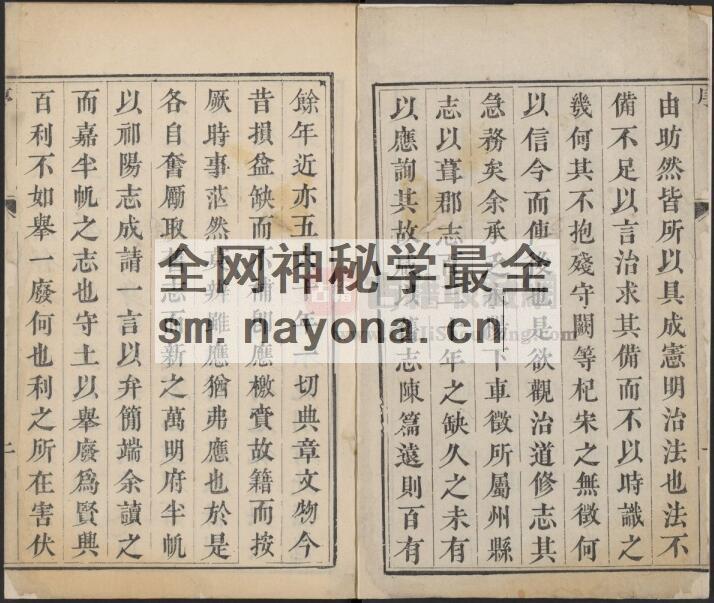 序
由昉然皆所以具成憲明治法也法不
備不足以言治求其備而不以時識之
幾何其不抱殘守闕等杞宋之無徵何
以信今而傳也是欲觀治道修志其
急務矣余承下車徵所屬州縣
志以葺郡志年之缺久之未有
以應詢其故志陳篇遠則百有
餘年近亦五六年一切典章文物今
昔損益缺而補即應檄賫故籍而按
厥時事茫然辨雖應猶弗應也於是
各自奮厲取志而新之萬明府半帆
以祁陽志成請一言以弁簡端余讀之
而嘉半帆之志也守土以舉廢為賢興
百利不如舉一廢何也利之所在害伏
全网神秘学最全
sm. nayona. cn